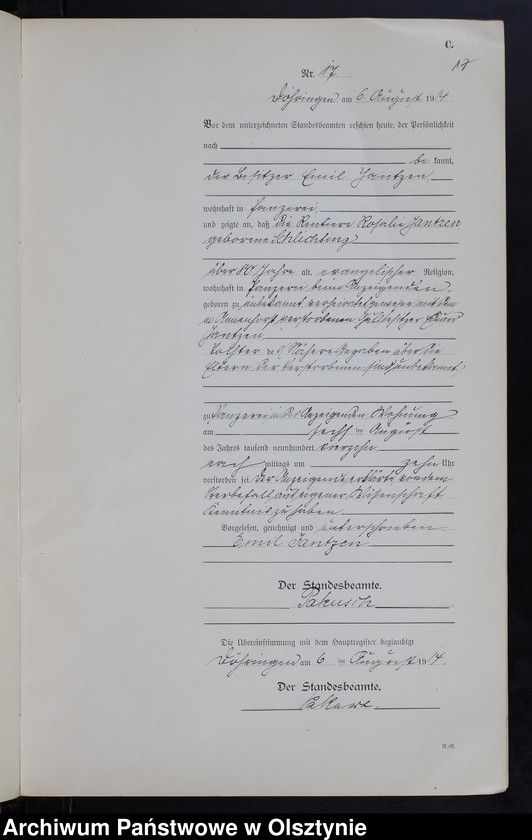 C.
17
Nr. 17
Döhringen am 6 August 1914.
Vor dem unterzeichneten Standesbeamten erschien heute, der Persönlichkeit
nach
be kannt,
der Besitzer Emil Jantzen
wohnhaft in Panzerei
und zeigte an, daß die Rentiere Rosalie Jantzen
geborene Schlichting
über 80 Jahre alt, evangelischer Religion,
wohnhaft in Panzerei beim Anzeigenden.
geboren zu unbekannt, verheiratet gewesen mit dem
in verstorbenen
Jantzen
Tochter de Nähere Angaben über die
Eltern der Verstorbenen sind unbekannt
zu Panzerei in des Anzeigenden Wohnung
am sechs ten August
des Jahres tausend neunhundert vierzehn
nach mittags um zehn Uhr
verstorben sei. Der Anzeigende erklärte von dem
Sterbefall aus eigener Wissenschaft
Kenntnis zu haben
Vorgelesen, genehmigt und unterschrieben
Emil Jantzen
Der Standesbeamte.
Die Übereinstimmung mit dem Hauptregister beglaubigt
Döhringen am 6 ten August 1914.
Der Standesbeamte.
Archiwum Państwowe w Olsztynie